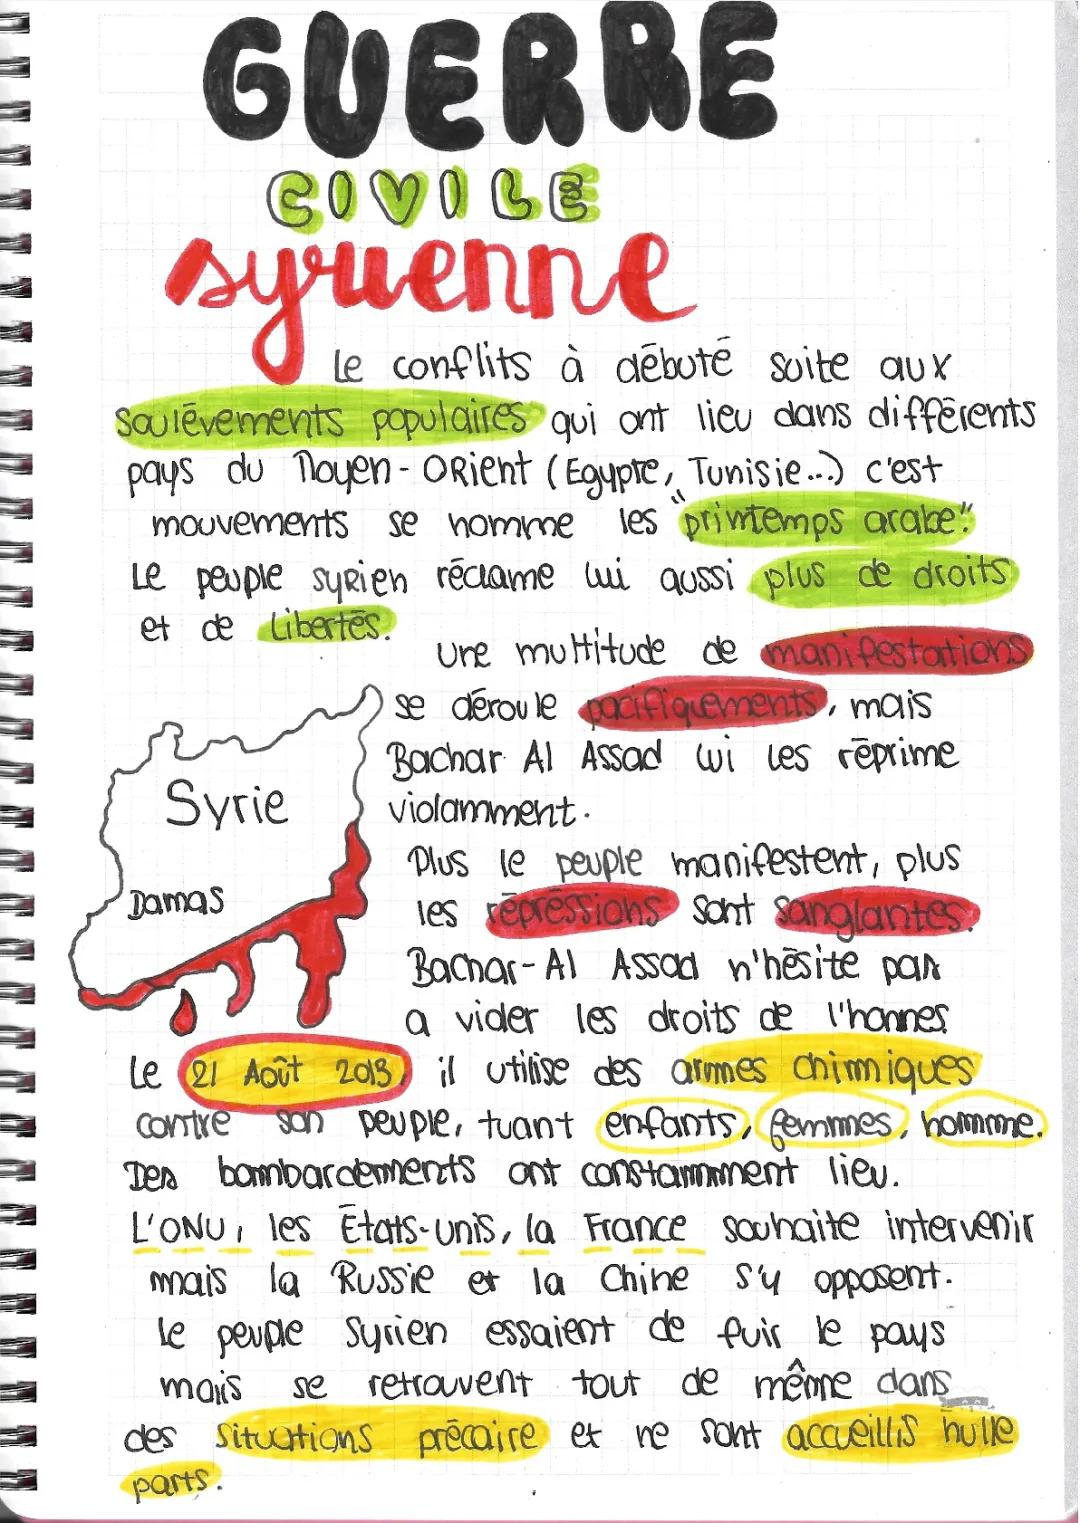 GUERRE
CIVILE
syrienne
Le conflits à débuté suite aux
soulévements populaires qui ont lieu dans différents
pays du Moyen-Orient (Egypte, Tunisie...) c'est
mouvements se nomme les "printemps arabe".
Le peuple syrien réclame lui aussi plus de droits
et de Libertés.
Une multitude de manifestations
se déroule pacifiquements, mais
Bachar Al Assad lui les réprime
violamment.
Plus le peuple manifestent, plus
les répréssions sont sanglantes.
Bachar-Al Assad n'hésite pas
a vider les droits de l'hommes
Syrie
Damas
Le 21 Août 2013, il utilise des armes chimiques
contre son peuple, tuant enfants, femmes, homme.
Des bombardements ont constammment lieu.
L'ONU, les États-unis, la France souhaite intervenir
mais la Russie et la Chine s'y opposent.
Le peuple Syrien essaient de fuir le pays
mais se retrouvent tout de même dans
des situations précaire et ne sont accueillis nulle
parts.